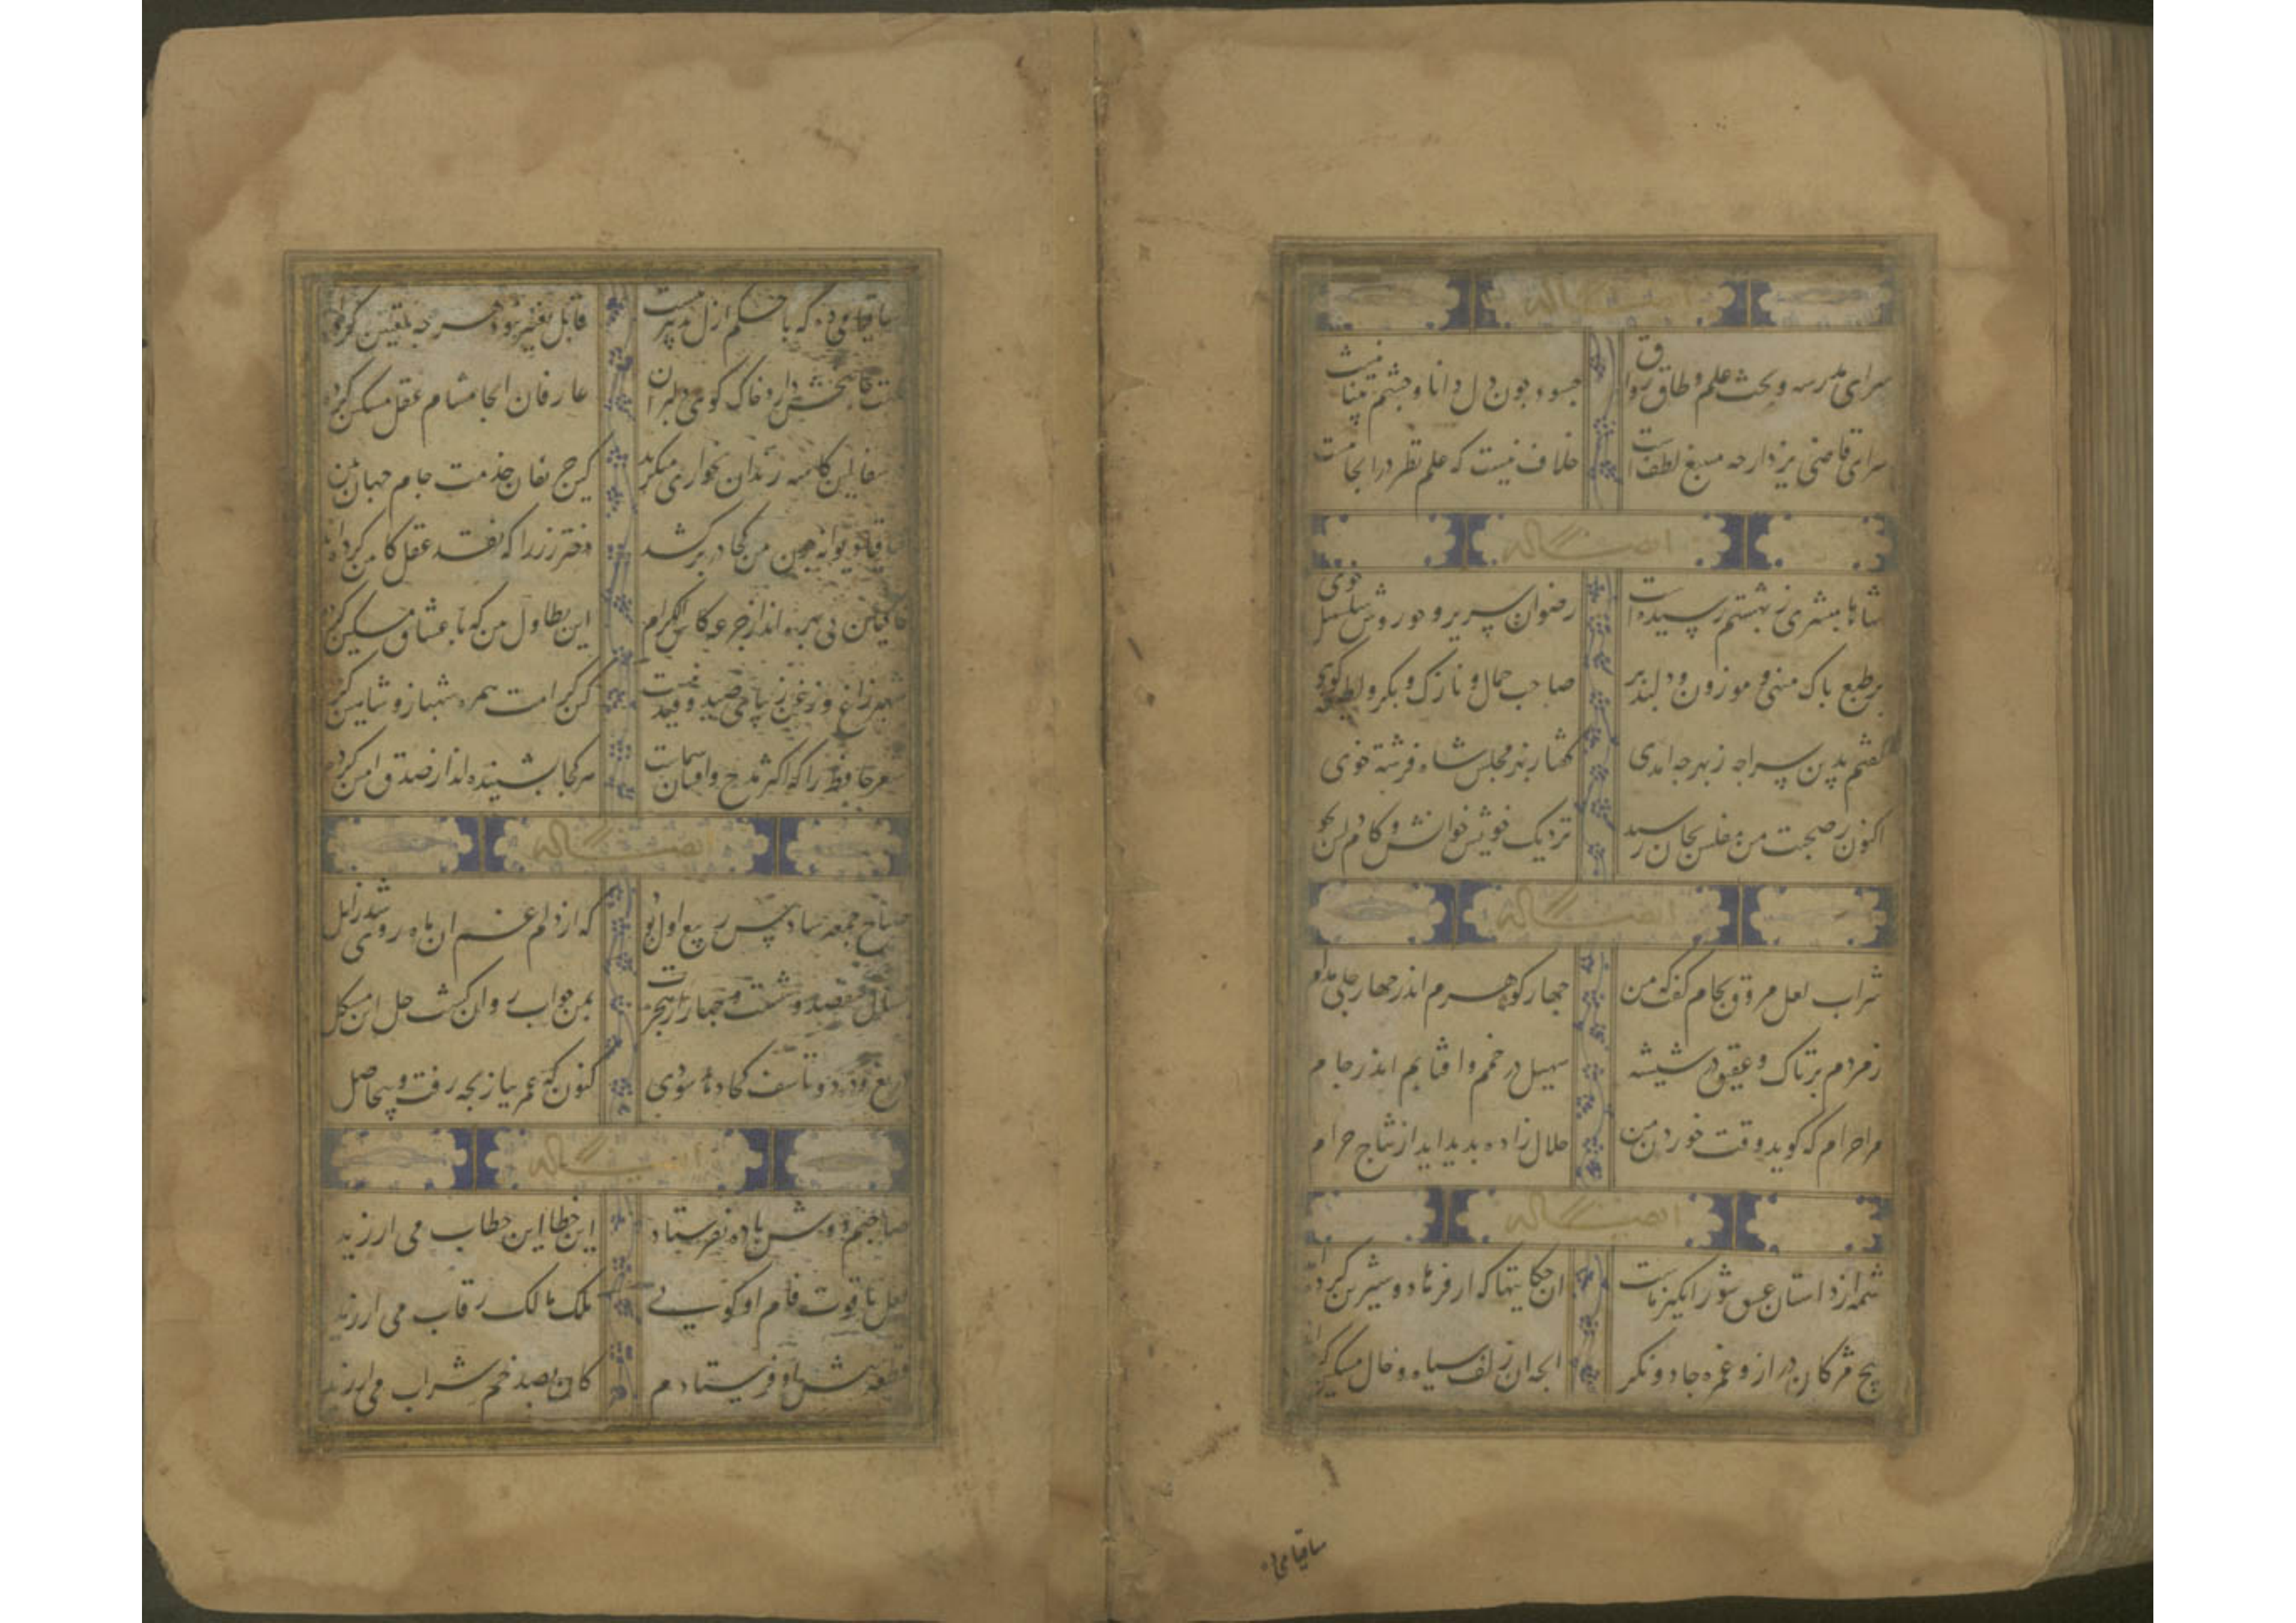 ایضاً له
سرای مدرسه و بحث علم و طاق رواق
چه سود چون دل دانا و چشم بینا نیست
سرای قاضی یزد ارچه منبع لطفست
خلاف نیست که علم نظر در انجا نیست
ایضاً له
شاها مبشری ز بهشتم رسیده است
رضوان سریر و حوروش سلسبیل خوی
بر طبع پاک منهی و موزون و دلپذیر
صاحب جمال و نازک و بکر و لطیفه کوی
کفتم بدین سراچه ز بهر چه امدی
کفتا ز بهر مجلس شاه فرشته خوی
اکنون ز صحبت من مفلس بجان رسید
نزدیک خویش خوانش و کام دلش بجو
ایضاً له
شراب لعل مروق بجام کفت که من
چهار کوهرم اندر چهار جای مدام
زمردم بر تاک و عقیق در شیشه
سهیل در خم و افتابم اندر جام
مرا حرام که کوید وقت خوردن من
حلال زاده بدید اید از نتاج حرام
ایضاً له
شمه از داستان عشق شورانکیز ماست
ان حکایتها که از فرهاد و شیرین کرده‌اند
هیچ مژکان دراز و غمزه جادو نکرد
انچه ان زلف سیاه و خال مشکین کرده‌اند
ساقیا می ده
ساقیا می ده که با حکم ازل تدبیر نیست
قابل تغییر نبود هر چه تعیین کرده‌اند
نکهت جانبخش دارد خاک کوی دلبران
عارفان انجا مشام عقل مسکین کرده
در سفالین کاسه رندان بخواری منکرید
کین حریفان خدمت جام جهان بین
ساقیا دیوانه چون من کجا در بر کشد
دختر رز را که نقد عقل کابین کرده‌اند
خاکیان بی بهره اند از جرعه کاس الکرام
این تطاول بین که با عشاق مسکین کرد
شهپر زاغ و زغن زیبای صید و قید نیست
کین کرامت همره شهباز و شاهین کرد
شعر حافظ را که اکثر مدح و احسان شماست
هر کجا بشنیده اند از صدق امین کرده
ایضاً له
صباح جمعه سادس ربیع اول بود
که از دلم غم ان ماه روی شد زایل
بسال هفصد و شصت و چهار از هجرت
بمن جواب روان کشت حل این مشکل
دریغ و درد و تاسف کجا دهد سودی
کنون که عمر ببازیجه رفت و بیحاصل
ایضاً له
صاحبم دوش باده نفرستاد
این خطا این خطاب می ارزید
لعل یاقوت فام او کویی
ملک مالک رقاب می ارزید
قطعه پیش او فرستادم
کان بصد خم شراب می ارزید